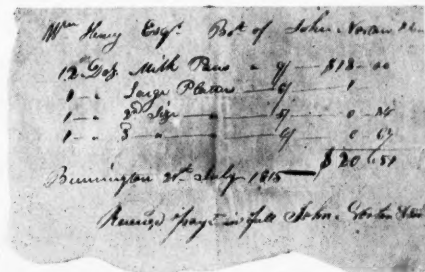 Wm Henry Esqr Bot of John Norton
12 Doz Milk Pans " 9/ — $18 — 00
1 — " Large Platters — 6/ — 1
1 — " 2d Size — " — 5/ — 0 — 84
1 — " 3 " — " — 4/ — 0 67
$ 20 51
Bennington 21st July 1815
Received payt in full John Norton